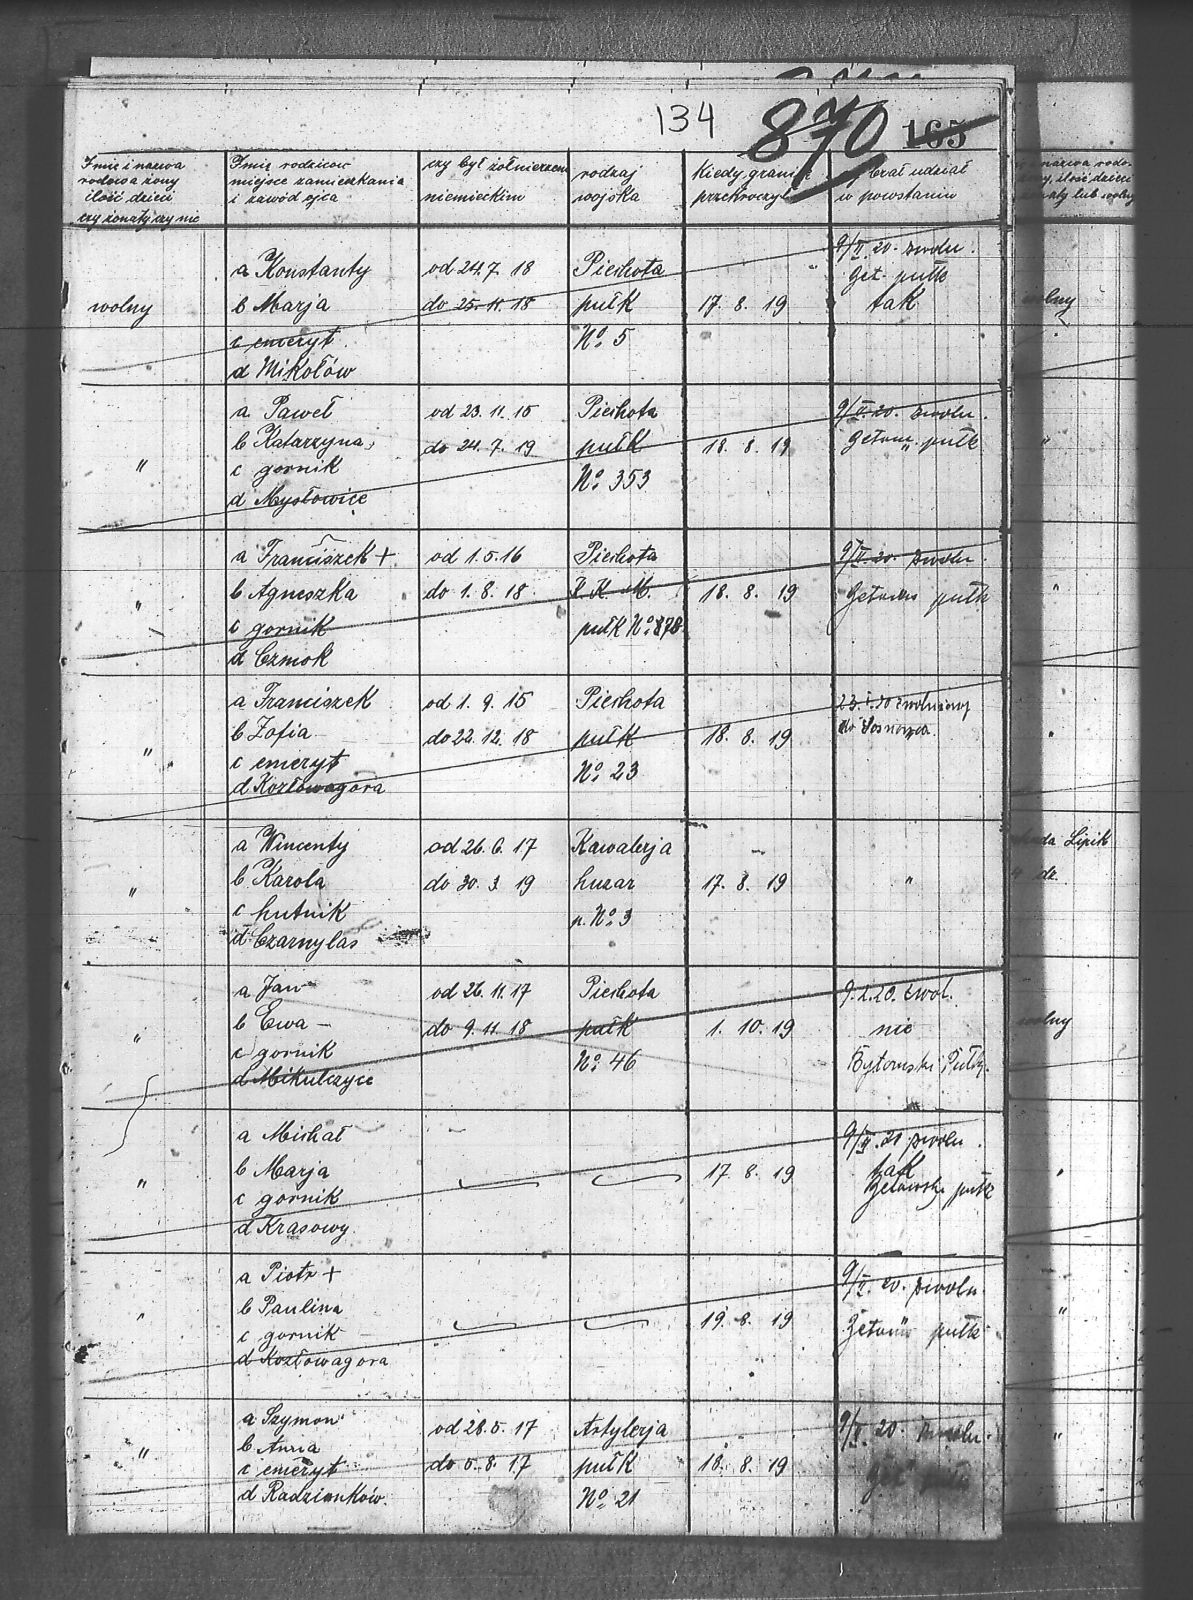 134 870 165
Imię i nazwa
rodowa żony
ilość dzieci
czy żonaty czy nie
Imię rodziców
miejsce zamieszkania
i zawód ojca
czy był żołnierzem
niemieckim
rodzaj
wojska
Kiedy granicę
przekroczył
brał udział
w powstaniu
nazwa rodo.
żony, ilość dzieci
żonaty lub wolny
wolny
a Konstanty
b Marja
c emeryt
d Mikołów
od 24.7.18
do 25.11.18
Piechota
pułk
No. 5
17. 8. 19
9/II. 20. zwoln.
Get. pułk
tak
wolny
"
a Paweł
b Katarzyna,
c gornik
d Mysłowice
od 23.11.15
do 24.7.19
Piechota
pułk
No. 353
18. 8. 19
9/II. 20. zwoln.
pułk
"
"
a Franciszek +
b Agneszka
c gornik
d Czmok
od 1.5.16
do 1.8.18
Piechota
K. M.
pułk No. 878
18. 8. 19
9/II. 20. zwoln.
pułk
"
"
a Franciszek
b Zofia
c emeryt
d Kozłowagora
od 1.9.15
do 22.12.18
Piechota
pułk
No. 23
18. 8. 19
zwolniony
do Sosnowca.
"
"
a Wincenty
b Karola
c hutnik
d Czarnylas
od 26.6.17
do 30.3.19
Kawalerja
huzar
p. No. 3
17. 8. 19
"
Lipik
4 dz.
"
a Jan
b Ewa
c gornik
d Mikulczyce
od 26.11.17
do 9.11.18
Piechota
pułk
No. 46
1. 10. 19
9.2.20. zwol.
nie
Bytomski Pułk.
wolny
"
a Michał
b Marja
c gornik
d Krasowy.
17. 8. 19
zwoln.
tak
pułk
"
"
a Piotr +
b Paulina
c gornik
d Kozłowagora
19. 8. 19
9/II. 20. zwoln.
pułk
"
"
a Szymon
b Anna
c emeryt
d Radzionków.
od 28.5.17
do 5.8.17
Artylerja
pułk
No. 21
18. 8. 19
9/II. 20. zwoln.
"